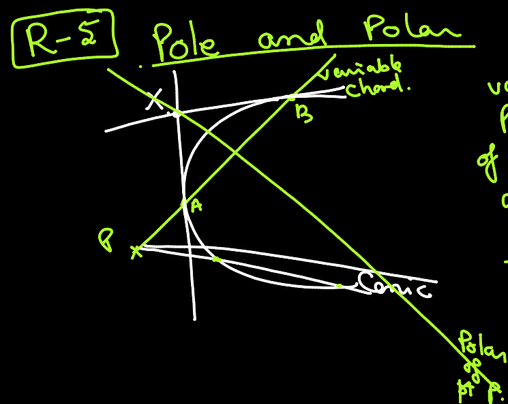 R-5 Pole and Polar
variable
chord.
X
B
A
P
of
Conic
Polar
of
pt P.